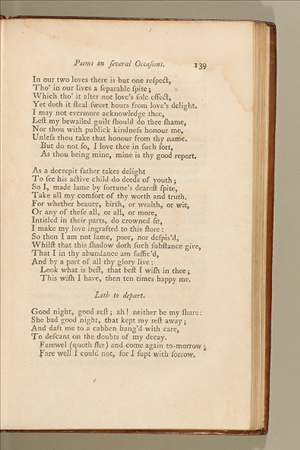 Poems on ſeveral Occaſions. 139
In our two loves there is but one reſpect,
Tho' in our lives a ſeparable ſpite;
Which tho' it alter not love's ſole effect,
Yet doth it ſteal ſweet hours from love's delight.
I may not evermore acknowledge thee,
Leſt my bewailed guilt ſhould do thee ſhame,
Nor thou with publick kindneſs honour me,
Unleſs thou take that honour from thy name.
But do not ſo, I love thee in ſuch ſort,
As thou being mine, mine is thy good report.
As a decrepit father takes delight
To ſee his active child do deeds of youth;
So I, made lame by fortune's deareſt ſpite,
Take all my comfort of thy worth and truth.
For whether beauty, birth, or wealth, or wit,
Or any of theſe all, or all, or more,
Intitled in their parts, do crowned ſit,
I make my love ingrafted to this ſtore:
So then I am not lame, poor, nor deſpis'd,
Whilſt that this ſhadow doth ſuch ſubſtance give,
That I in thy abundance am ſuffic'd,
And by a part of all thy glory live:
Look what is beſt, that beſt I wiſh in thee;
This wiſh I have, then ten times happy me.
Loth to depart.
Good night, good reſt; ah! neither be my ſhare:
She bad good night, that kept my reſt away;
And daft me to a cabben hang'd with care,
To deſcant on the doubts of my decay.
Farewel (quoth ſhe) and come again to-morrow;
Fare well I could not, for I ſupt with ſorrow.